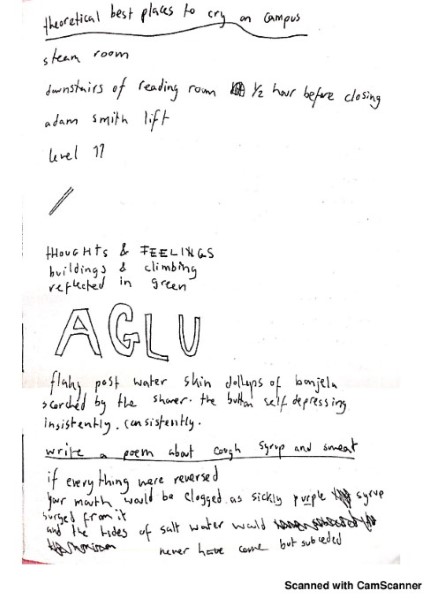 theoretical best places to cry on campus
steam room
downstairs of reading room 1/2 hour before closing
adam smith lift
level 11
THOUGHTS & FEELINGS
buildings & climbing
reflected in green
AGLU
flaky post water skin dollops of bonjela
scorched by the shower. the button self depressing
insistently. consistently.
write a poem about cough syrup and sweat
if everything were reversed
your mouth would be clogged as sickly purple syrup
surged from it
and the tides of salt water would
never have come but subceded
Scanned with CamScanner